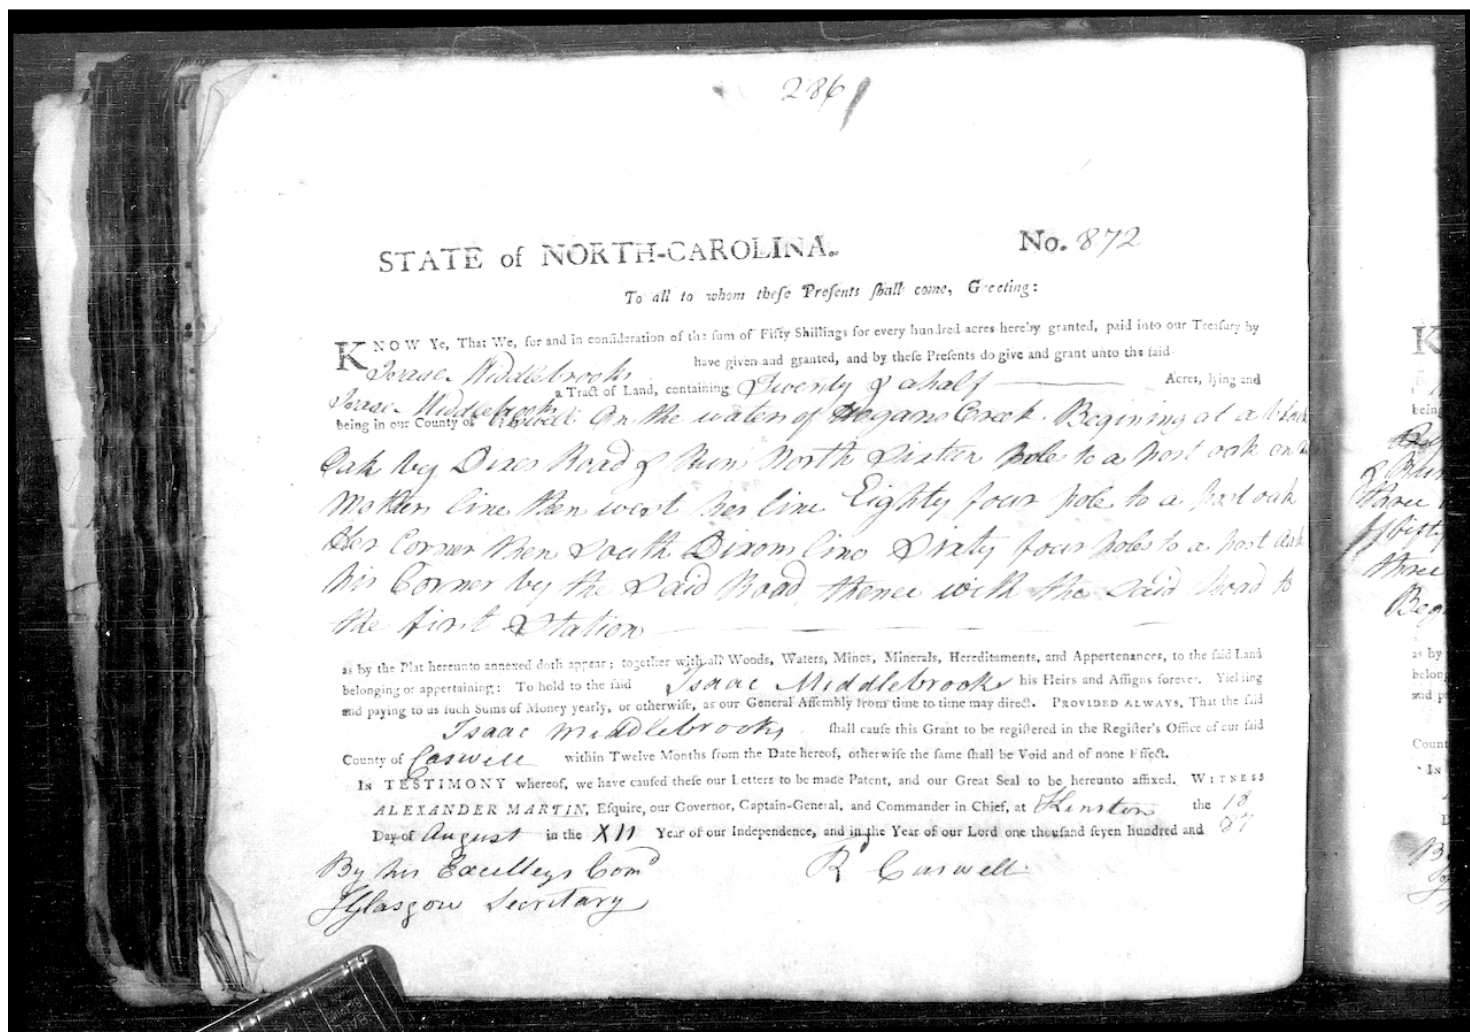 286
STATE of NORTH-CAROLINA.
No. 872
To all to whom theſe Preſents ſhall come, Greeting:
KNOW Ye, That We, for and in conſideration of the ſum of Fifty Shillings for every hundred acres hereby granted, paid into our Treaſury by
Isaac Middlebrooks have given and granted, and by theſe Preſents do give and grant unto the ſaid
Isaac Middlebrooks a Tract of Land, containing Twenty & a half Acres, lying and
being in our County of Caswell On the waters of Hogans Creek Begining at a black
Oak by Dixes Road & Runs North Sixteen pole to a post oak on
Mothers line then west her line Eighty four pole to a post oak
Her Corner then South Dixons line Sixty four poles to a post oak
his Corner by the Said Road thence with the Said Road to
the first Station
as by the Plat hereunto annexed doth appear; together with all Woods, Waters, Mines, Minerals, Hereditaments, and Appertenances, to the ſaid Land
belonging or appertaining: To hold to the ſaid Isaac Middlebrooks his Heirs and Aſſigns forever. Yielding
and paying to us ſuch Sums of Money yearly, or otherwiſe, as our General Aſſembly from time to time may direct. PROVIDED ALWAYS, That the ſaid
Isaac Middlebrooks ſhall cauſe this Grant to be regiſtered in the Regiſter's Office of our ſaid
County of Caswell within Twelve Months from the Date hereof, otherwiſe the ſame ſhall be Void and of none Effect.
IN TESTIMONY whereof, we have cauſed theſe our Letters to be made Patent, and our Great Seal to be hereunto affixed. WITNESS
ALEXANDER MARTIN, Eſquire, our Governor, Captain-General, and Commander in Chief, at Kinston the 18
Day of August in the XII Year of our Independence, and in the Year of our Lord one thouſand ſeven hundred and 87
By his Excelleys Comd
Rd Caswell
JGlasgow Secretary
K
being
three
three
Beg
as by
belong
and p
Count
In